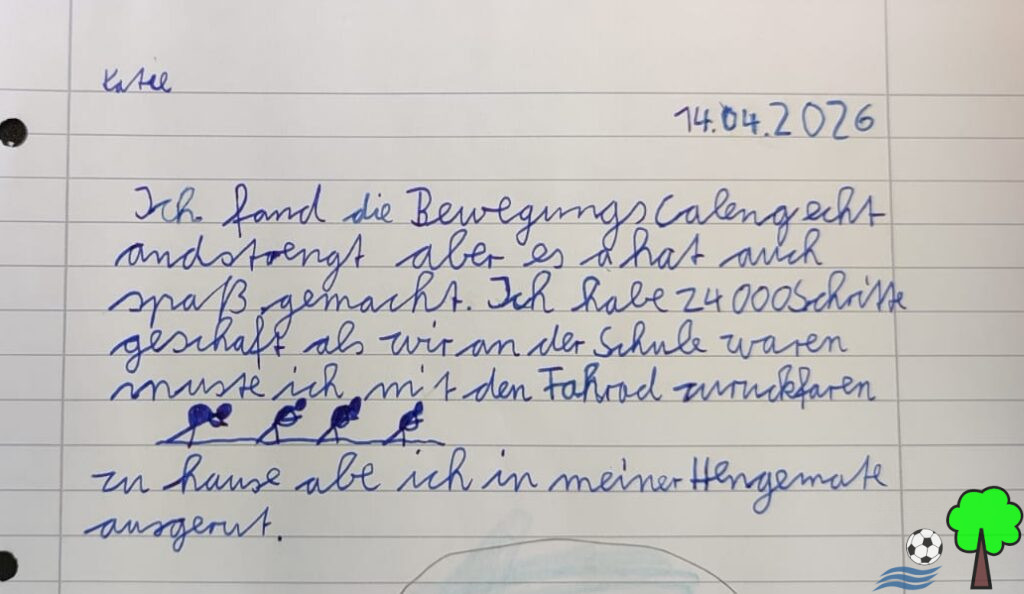 Katie
14.04.2026
Ich fand die Bewegungscalengecht
andstrengt aber es hat auch
spaß gemacht. Ich habe 24000 Schritte
geschaft als wir an der Schule waren
muste ich mit den Fahrad zurückfaren
zu hause abe ich in meiner Hengemate
ausgerut.